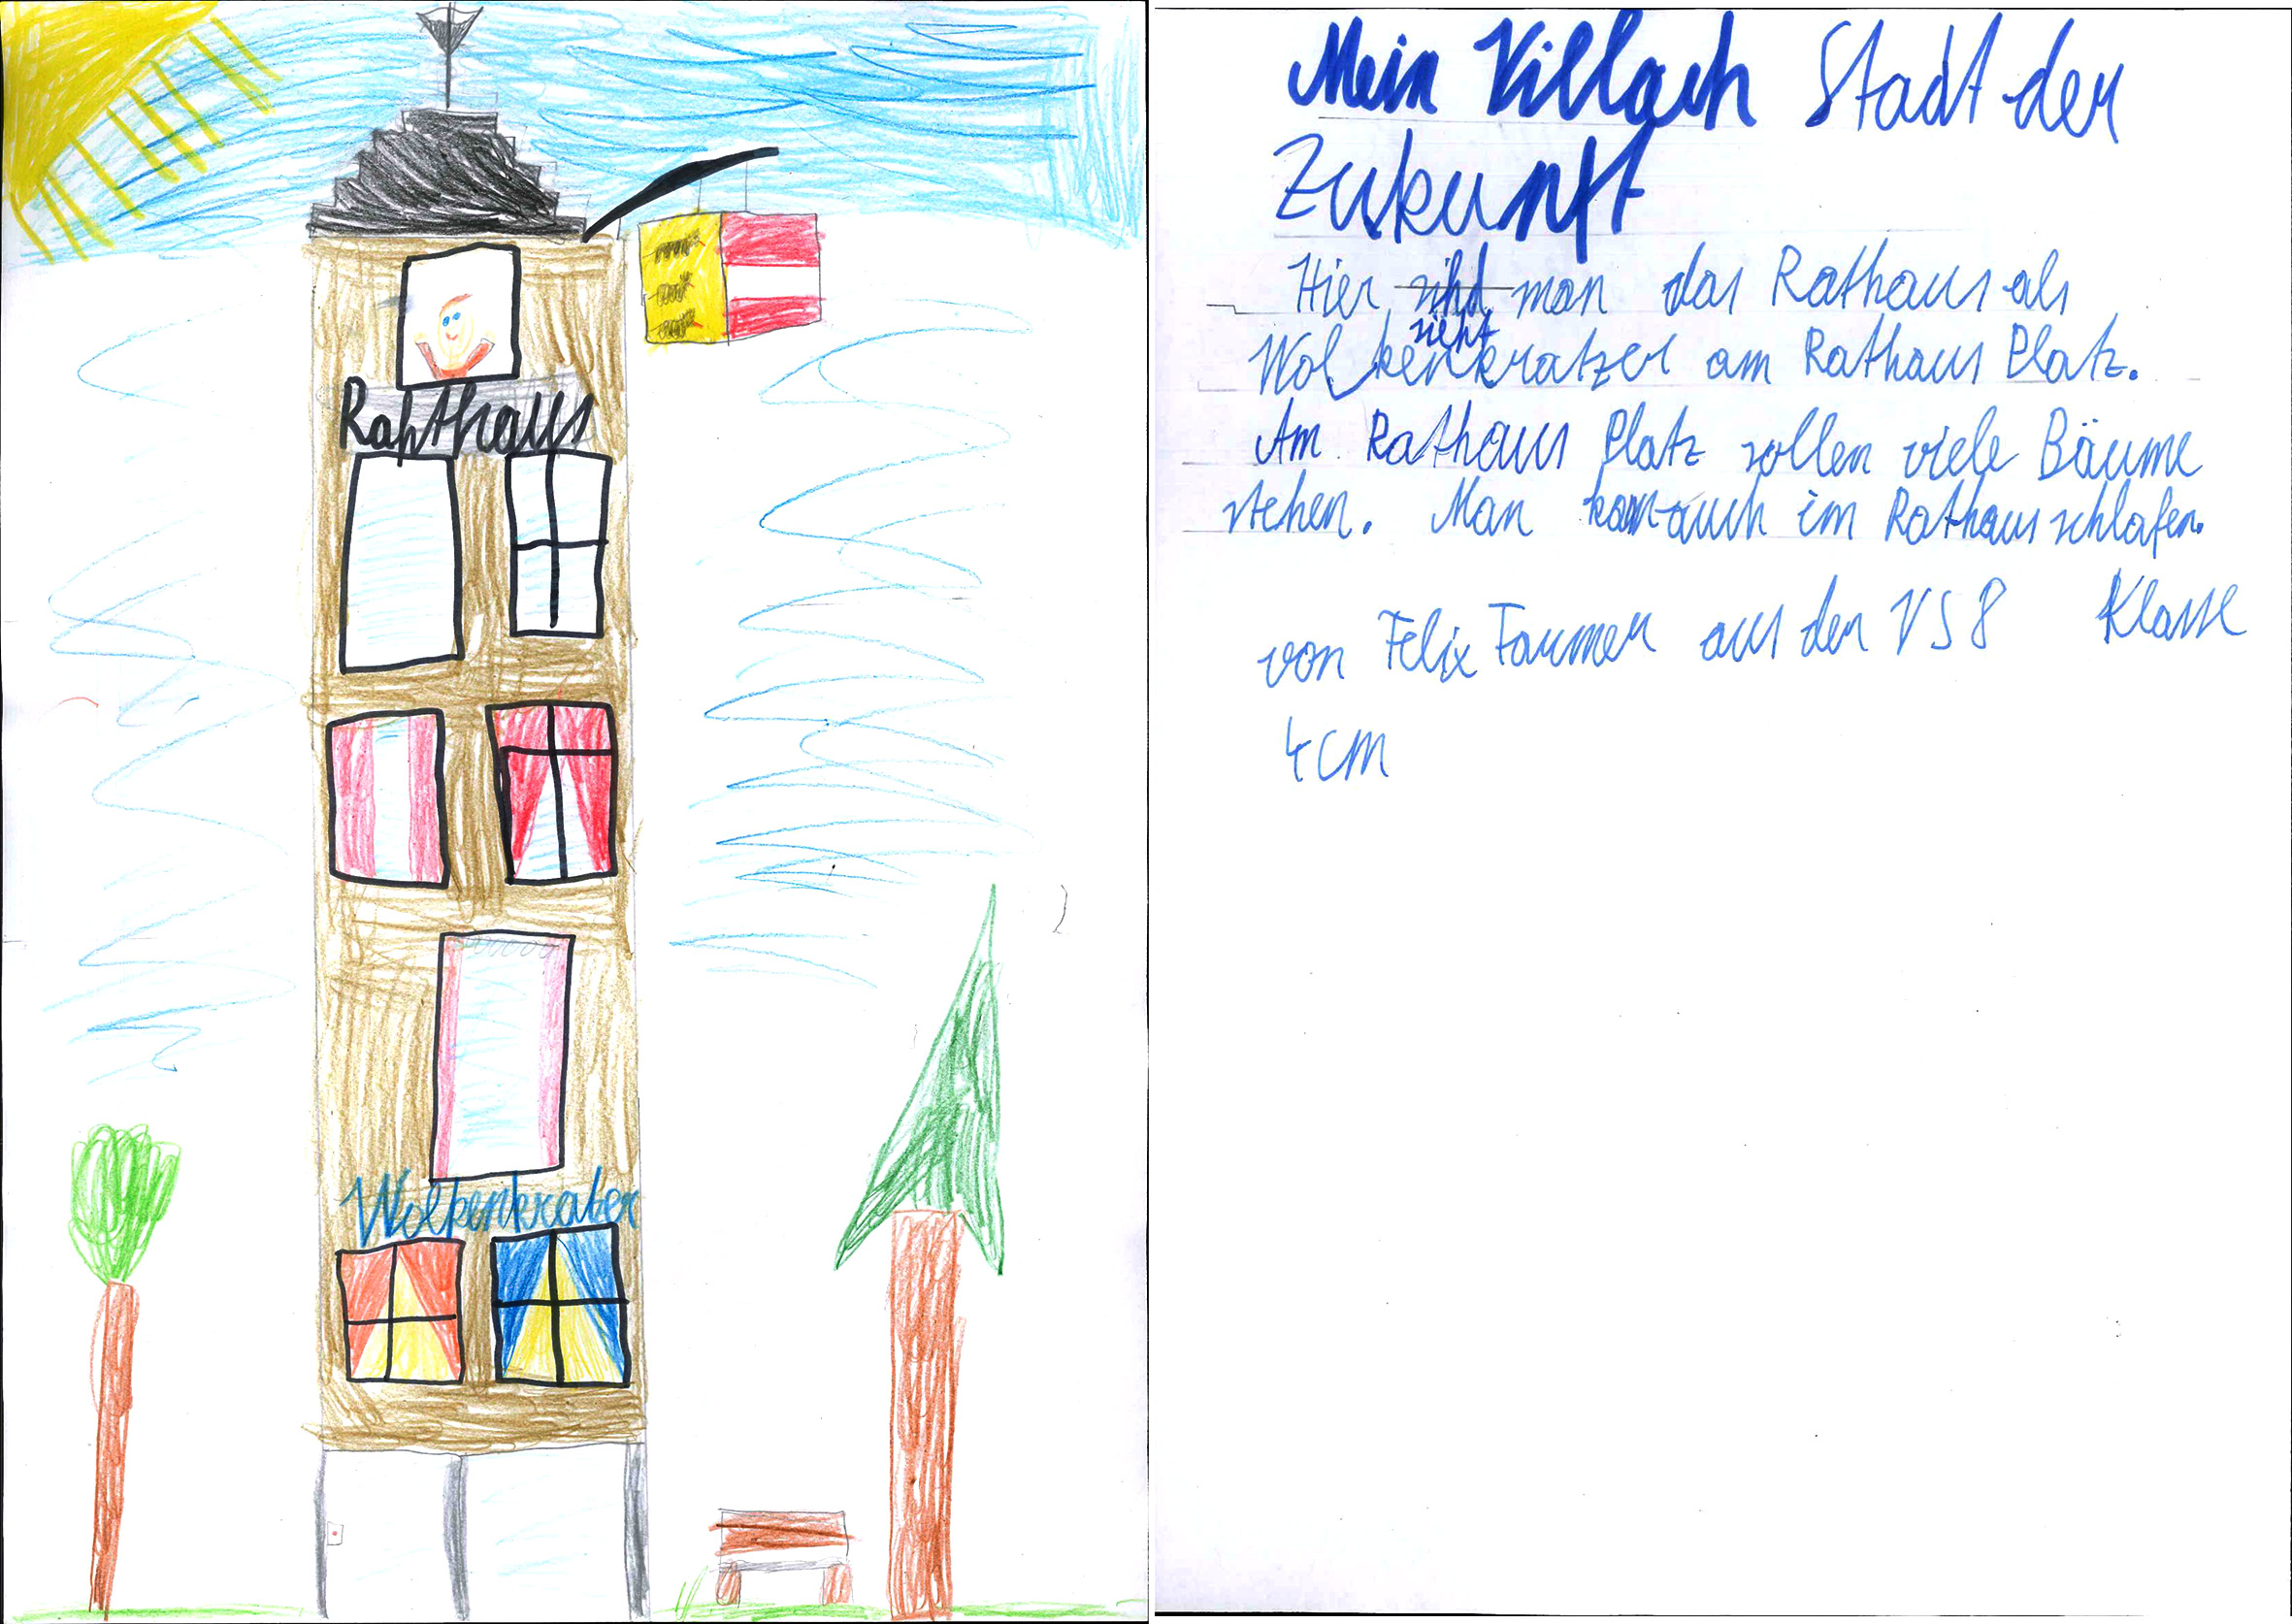 Rahthaus
Wolkenkrater
Mein Villach Stadt der
Zukunft
Hier siht man das Rathaus als
sieht
Wolkenkratzer am Rathaus Platz.
Am Rathaus Platz sollen viele Bäume
stehen. Man kann auch im Rathaus schlafen.
von Felix Faumer aus der VS 8 Klasse
4cm